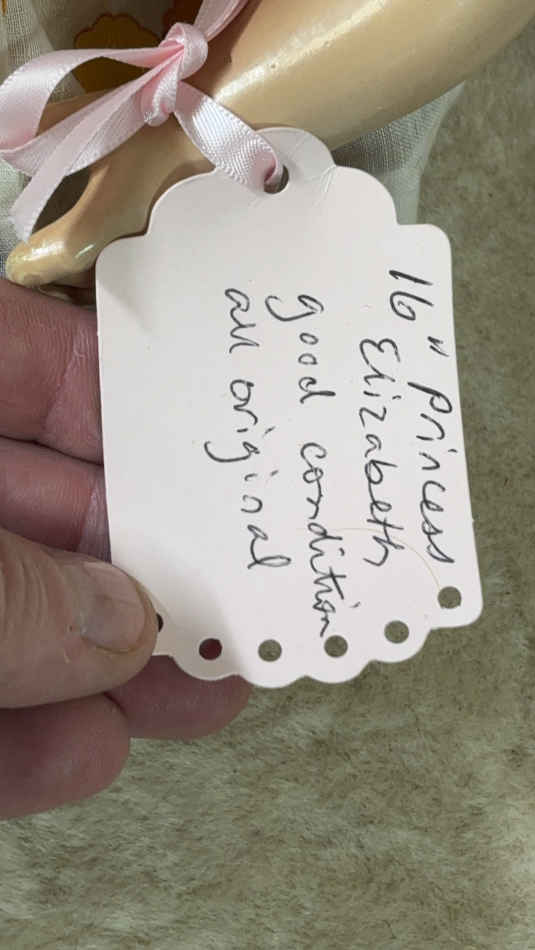 16" Princess
Elizabeth
good condition
all original